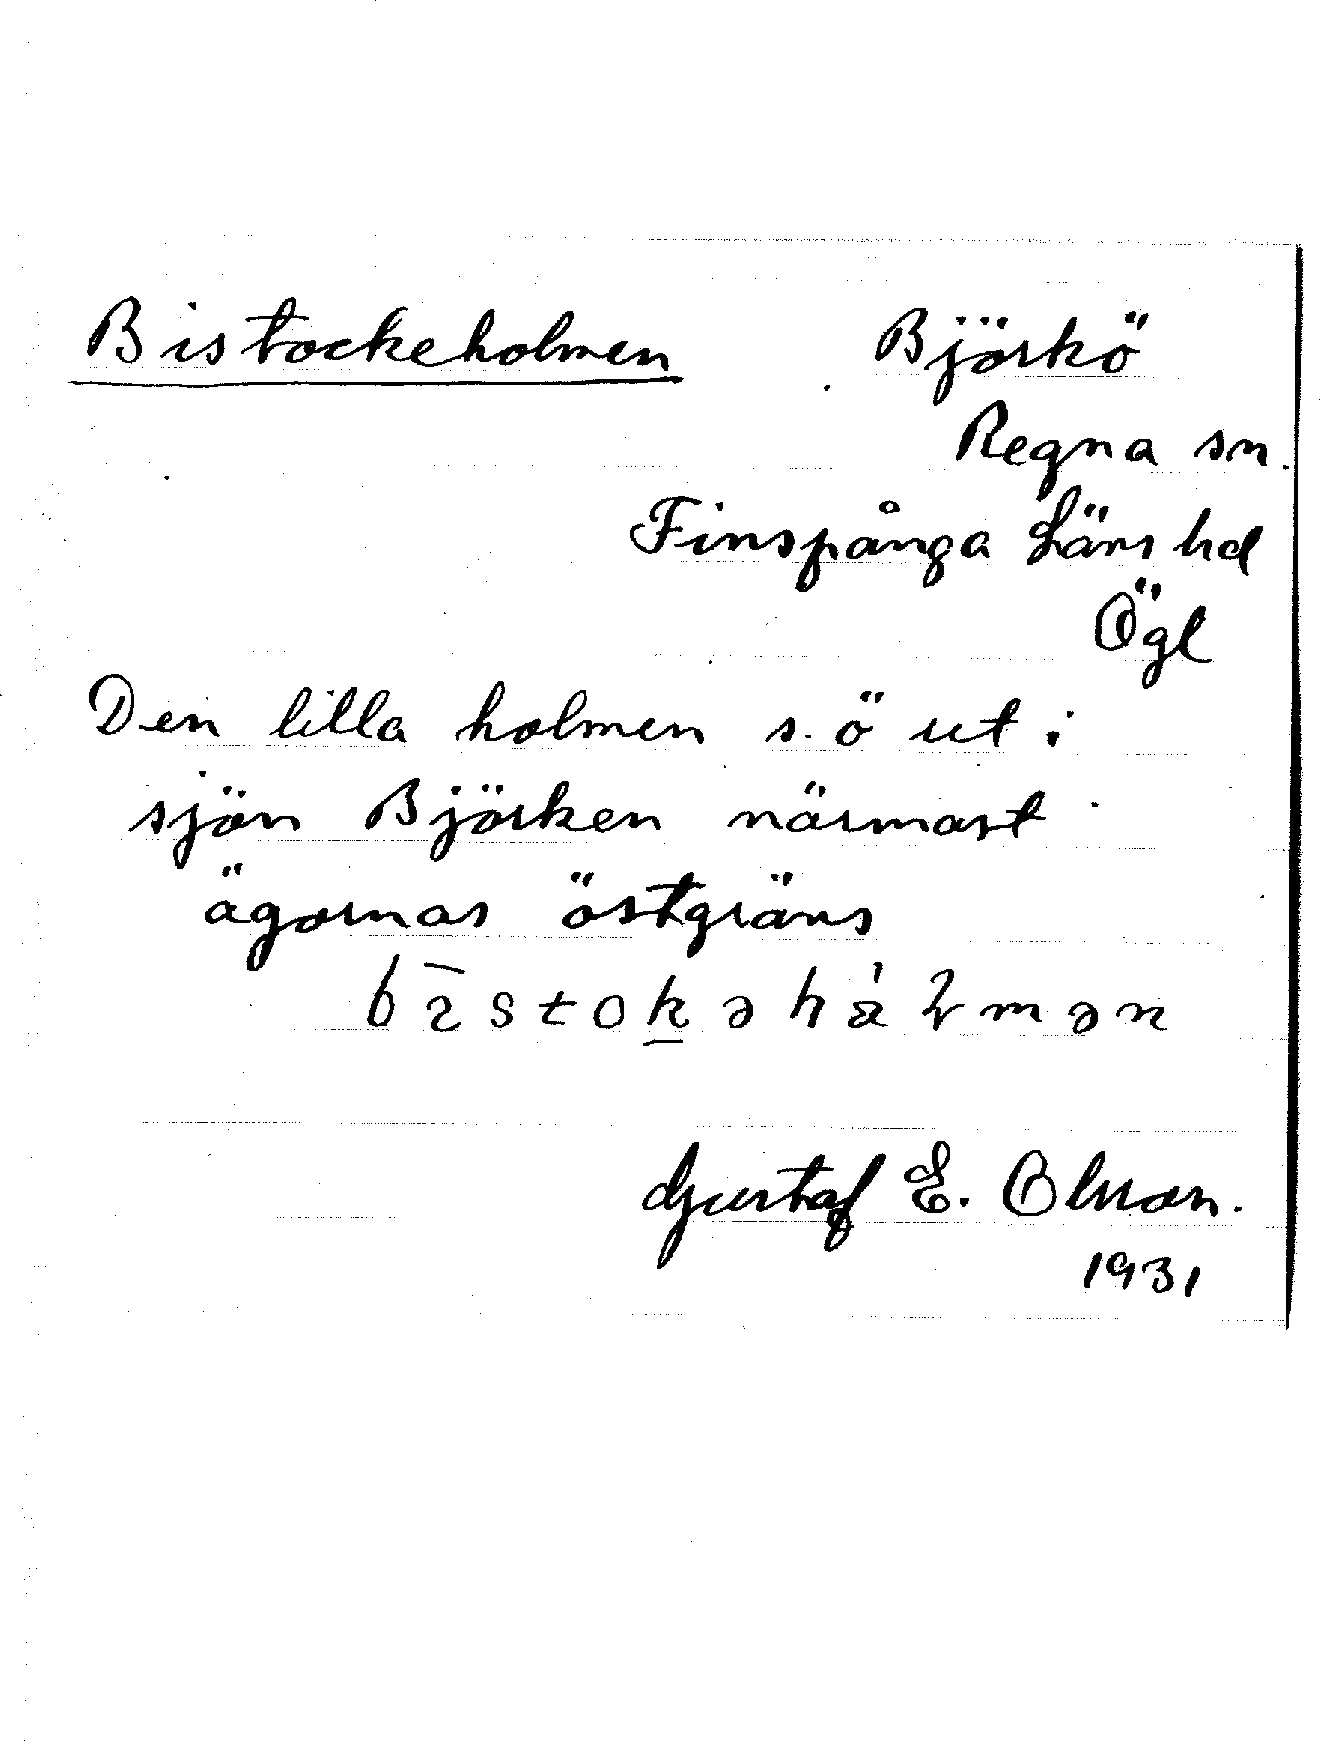 Bistockeholmen Björkö
Regna sn.
Finspånga Läns hd
Ögl
Den lilla holmen s.ö ut i
sjön Björken närmast
ägornas östgräns
bīstokəhå̀lmən
Gustaf E. Olsson.
1931